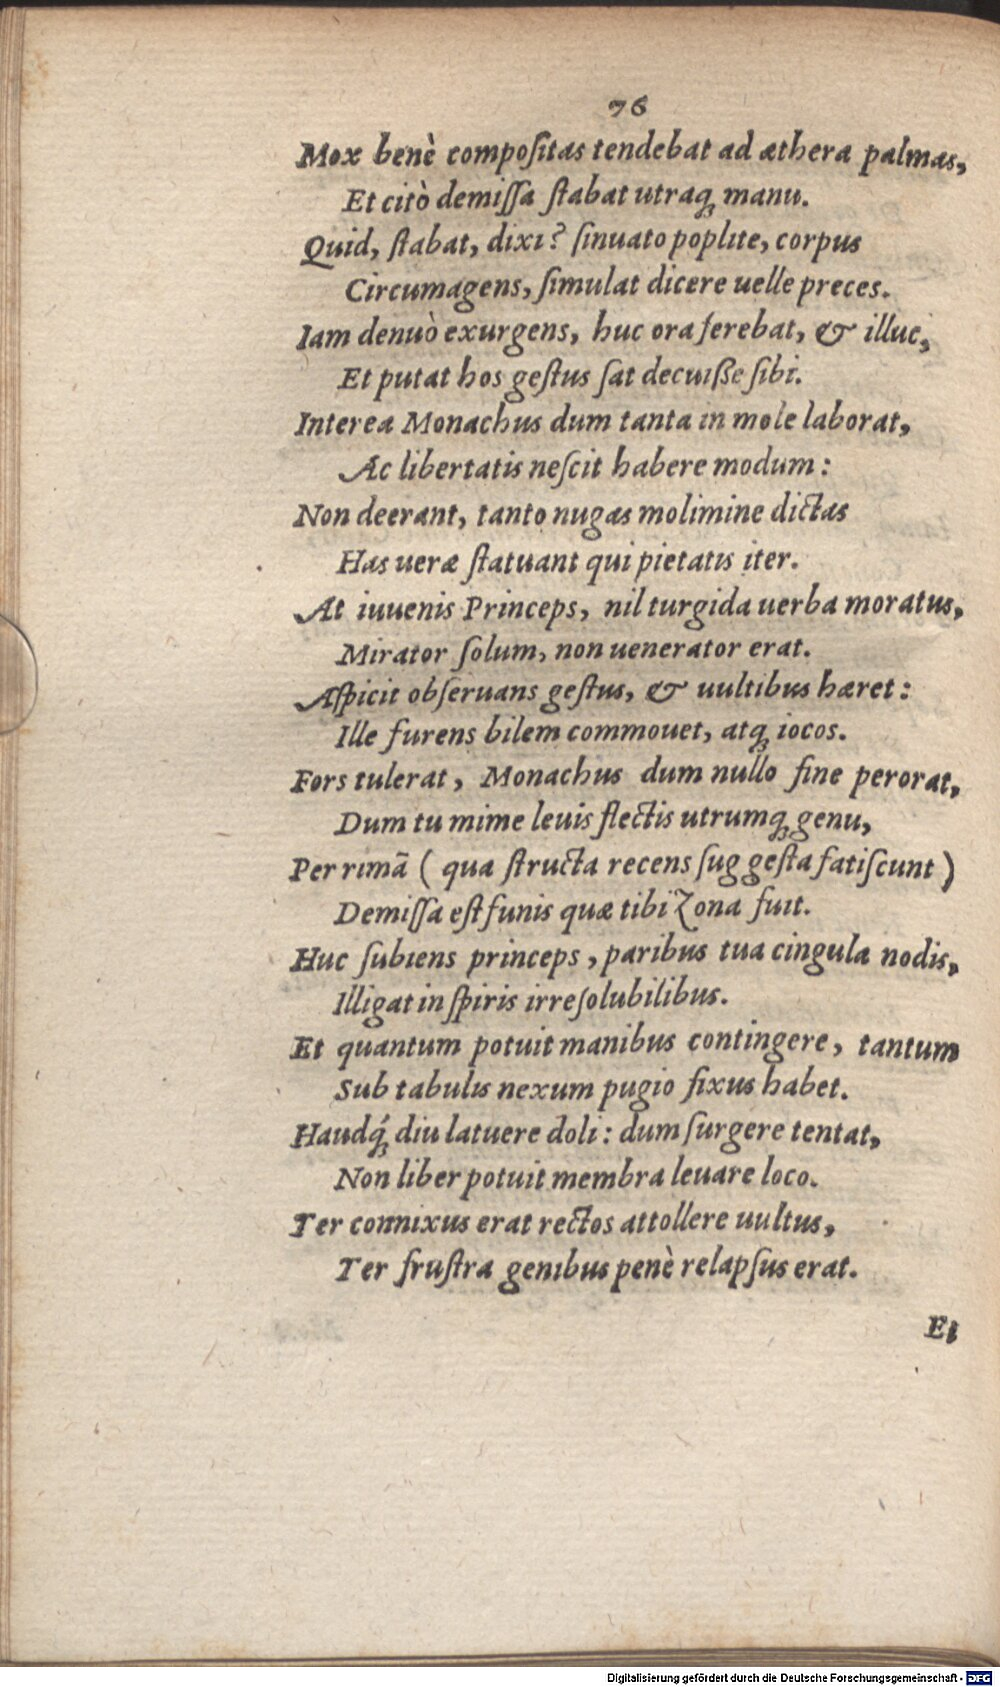 76
Mox benè compoſitas tendebat ad æthera palmas,
Et citò demiſſa ſtabat utraq; manu.
Quid, ſtabat, dixi? ſinuato poplite, corpus
Circumagens, ſimulat dicere uelle preces.
Iam denuò exurgens, huc ora ferebat, & illuc,
Et putat hos geſtus ſat decuiſſe ſibi.
Interea Monachus dum tanta in mole laborat,
Ac libertatis neſcit habere modum:
Non deerant, tanto nugas molimine dictas
Has ueræ ſtatuant qui pietatis iter.
At iuuenis Princeps, nil turgida uerba moratus,
Mirator ſolum, non uenerator erat.
Aſpicit obſeruans geſtus, & uultibus hæret:
Ille furens bilem commouet, atq; iocos.
Fors tulerat, Monachus dum nullo fine perorat,
Dum tu mime leuis flectis utrumq; genu,
Per rimã (qua ſtructa recens ſuggeſta fatiſcunt)
Demiſſa eſt funis quæ tibi Zona fuit.
Huc ſubiens princeps, paribus tua cingula nodis,
Illigat in ſpiris irreſolubilibus.
Et quantum potuit manibus contingere, tantum
Sub tabulis nexum pugio fixus habet.
Haudq́; diu latuere doli: dum ſurgere tentat,
Non liber potuit membra leuare loco.
Ter connixus erat rectos attollere uultus,
Ter fruſtra genibus penè relapſus erat.
Et
Digitalisierung gefördert durch die Deutsche Forschungsgemeinschaft - DFG